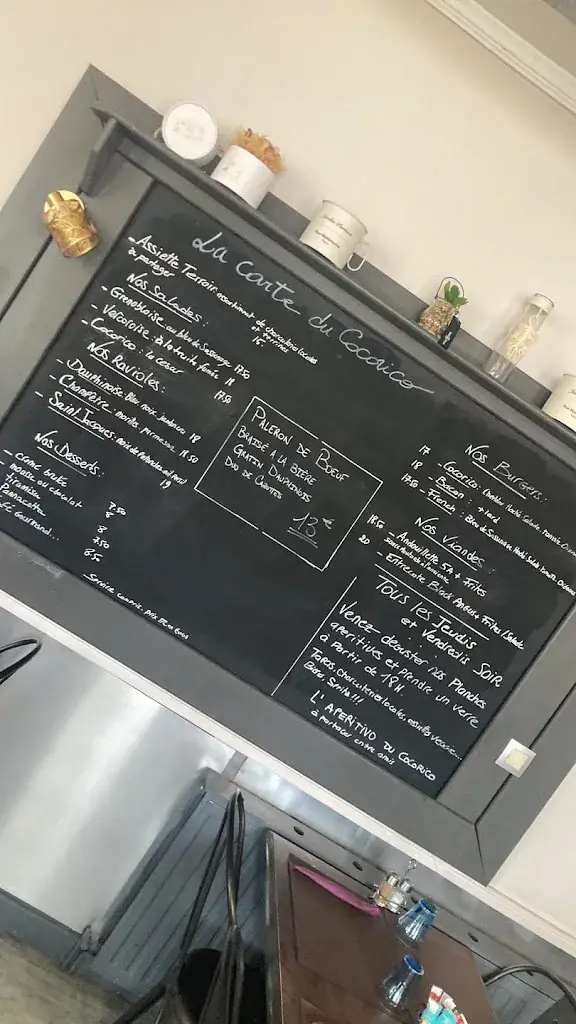 La carte du Cocorico
- Assiette Terroir assortiment de charcuteries locales
à partager et terrines 15.
Nos Salades:
- Grenobloise: au bleu de Sassenage 17.50
- Vercoroise: à la truite fumée 18
- Cocorico: la cesar 17.50
Nos Ravioles:
- Dauphinoise: Bleu noix jambon 18
- Champêtre: morilles parmesan 18.50
- Saint Jacques: noix de 19
Nos Desserts:
- creme brulée 7.50
moelleux au chocolat 8
tiramisu 8
7.50
Gourmand... 8.50
Service compris, prix en euros
Paleron de Boeuf
Braisé à la bière
Gratin Dauphinois
Duo de Carottes
13€
Nos Burgers:
17 - Cocorico: Haché Salade
18 - Bacon: + lard
17.50 - French: Bleu de Sassenage Haché Salade Tomate
Nos Viandes:
18.50 - Andouillette 5A + Frites
20 - Entrecote Black Angus + Frites / Salade
Tous les Jeudis
et Vendredis Soir
Venez déguster nos Planches
aperitives et prendre un verre
à partir de 18H
Tapas, charcuteries locales,
L'APERITIVO DU COCORICO
à partager entre amis